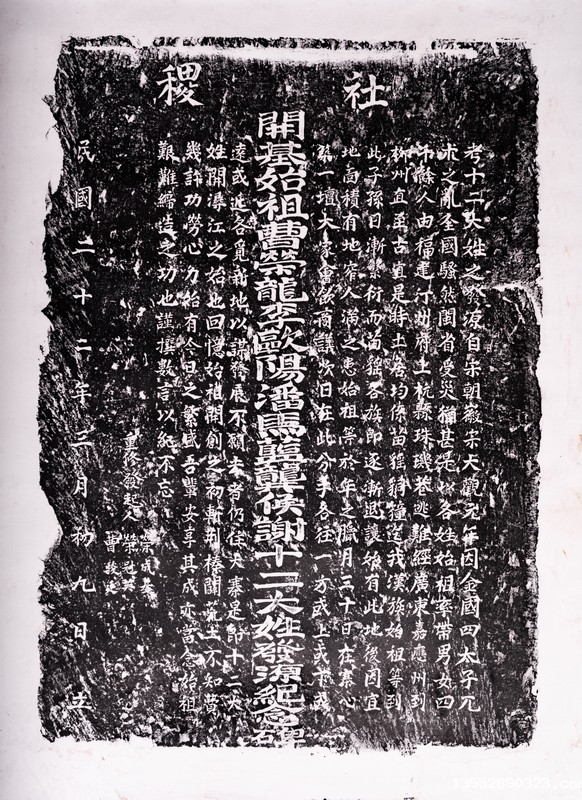 社稷
考十二大姓之發源自宋朝徽宗大觀元年因金國四太子兀
朮之亂全國騷然閩省受災獨甚是以各姓始祖率帶男女四
十餘人由福建汀州府上杭縣珠璣巷逃難經廣東嘉應州到
柳州直至古宜是時土著均係苗猺狪獞迨我漢族始祖等到
此子孫日漸繁衍而苗猺各族即逐漸退讓始有此地後因宜
地面積有地窄人滿之患始祖等於年之臘月三十日在寨心
祭一壇大家會飲商議次日在此分手各往一方或上或下或
開基始祖曹榮龍李歐陽潘馬藍龔侯謝十二大姓發源紀念碑
遠或近各覓新地以謀發展不願去者仍住大寨是即十二大
姓開潯江之始也回憶始祖開創之初斬荊榛闢荒土不知費
幾許功勞心力始有今日之繁盛吾輩安享其成亦當念始祖
艱難締造之功也謹撰數言以紀不忘
重修發起人
榮成
榮冠英
曹
民國二十二年三月初九日立
13952690323.co